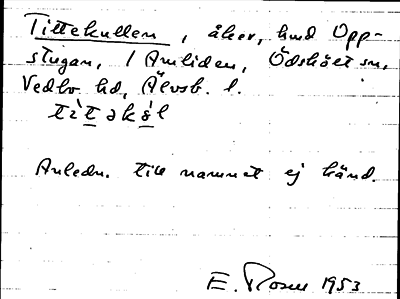 Tittekullen, åker, hmd Opp-
stugan, 1 Amliden, Ödskölt sn,
Vedbo hd, Älvsb. l.
Anledn. till namnet ej känd.
E. Rosen 1953